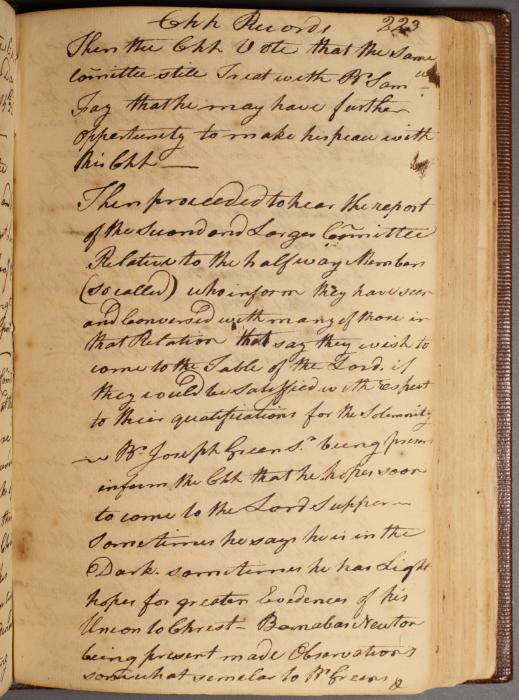 Chh Records 223
Then the Chh Vote that the Same
Com̄ittee still Treat with Br Sam ll
Fay that he may have further
opportunity to make his peace with
this Chh —
Then proceeded to hear the report
of the Second and Larger Com̄ittee
Relative to the half way Members
(so called) who inform they have seen
and Conversed with many of those in
that Relation that say they wish to
come to the Table of the Lord, if
they would be Satisfied with respect
to their qualifications for the Solemnity
~ Br Joseph Green Sr being present
inform the Chh that he hopes soon
to come to the Lord Supper —
Sometimes he says he is in the
Dark. sometimes he has Light
hopes for greater Evedences of his
Union to Christ — Barnabas Newton
being present made Observations
somewhat semelar to Br Greens &